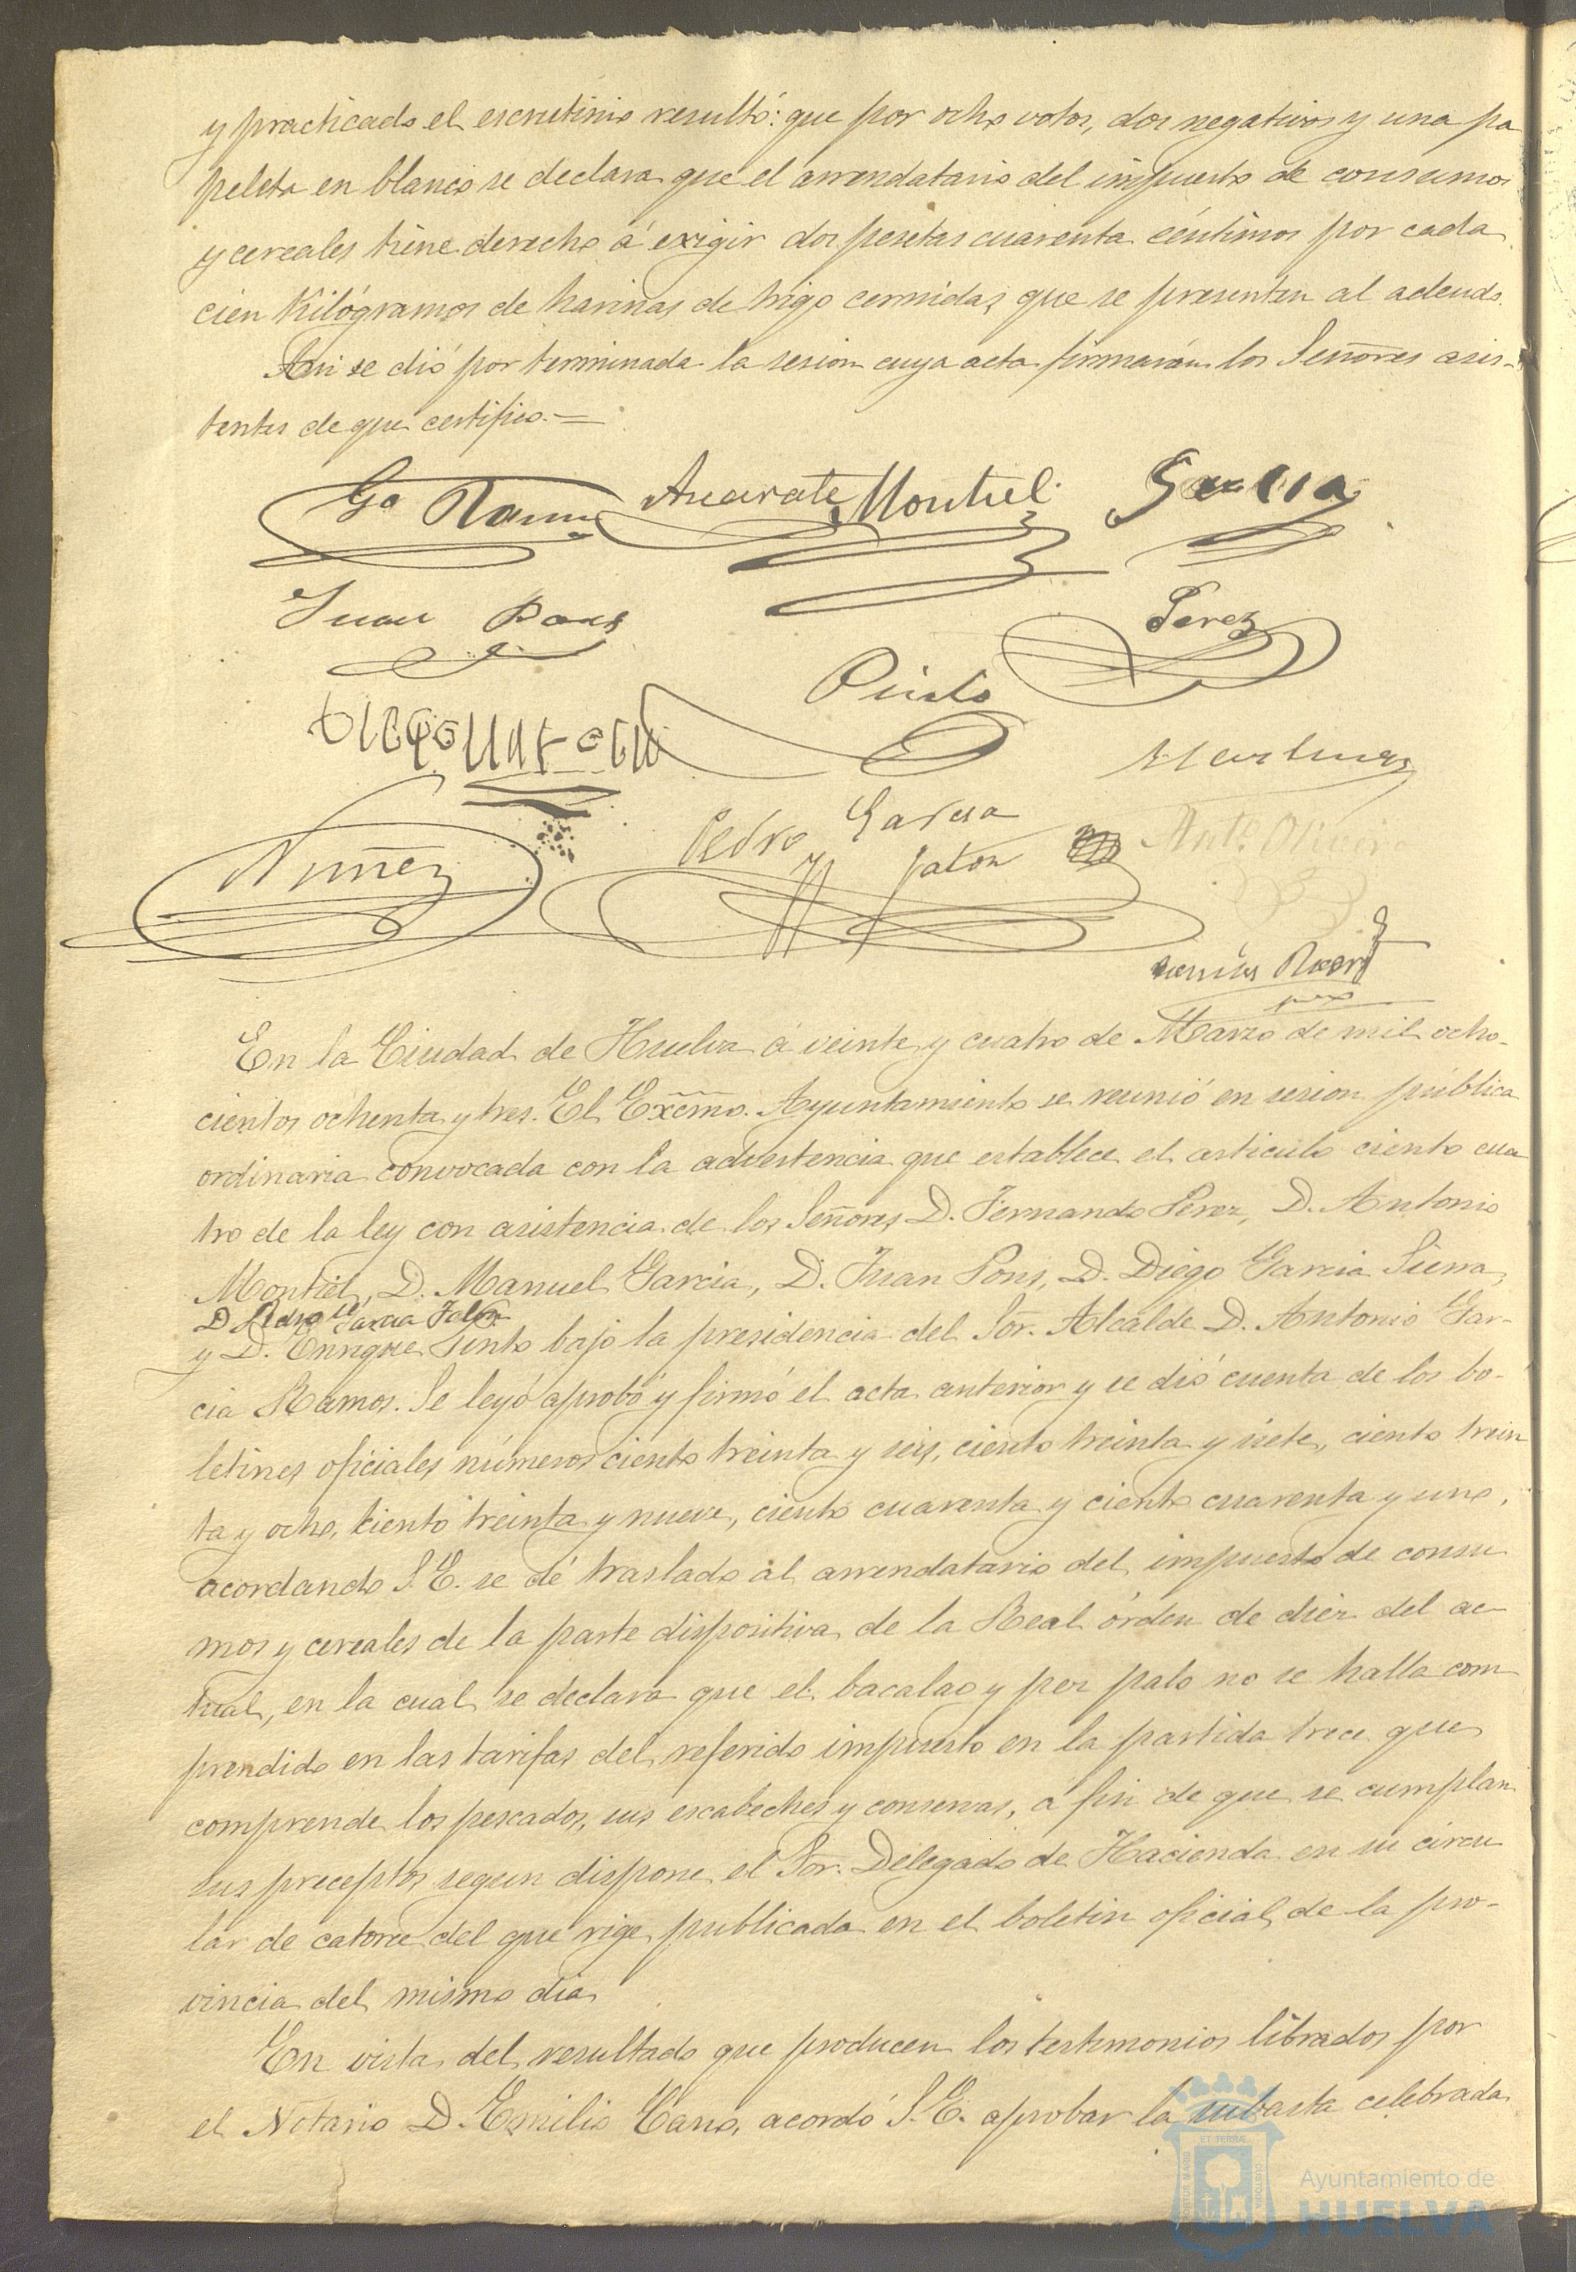 y practicado el escrutinio resultó: que por ocho votos, dos negativos y una pa
peleta en blanco se declara que el arrendatario del impuesto de consumos
y cereales tiene derecho á exigir dos pesetas cuarenta céntimos por cada
cien Kilógramos de harinas de trigo cernidas que se presenten al adeudo.
Asi se dió por terminada la sesion cuya acta firmarán los Señores asis-
tentes de que certifico.=
Ga Ramos Azcarate Montiel Garcia
Juan Pons Perez
Pinto
Martinez
Nuñez Pedro Garcia Jalon Ant. Oliveira
En la Ciudad de Huelva á veinte y cuatro de Marzo de mil ocho-
cientos ochenta y tres. El Excmo. Ayuntamiento se reunió en sesion pública
ordinaria convocada con la advertencia que establece el articulo ciento cua
tro de la ley con asistencia de los Señores D. Fernando Perez, D. Antonio
Montiel, D. Manuel Garcia, D. Juan Pons, D. Diego Garcia Sierra,
D Pedro Garcia Jalon
y D. Enrique Pinto bajo la presidencia del Sor. Alcalde D. Antonio Gar-
cia Ramos. Se leyó aprobó y firmó el acta anterior y se dió cuenta de los bo-
letines oficiales números ciento treinta y seis, ciento treinta y siete, ciento trein
ta y ocho, ciento treinta y nueve, ciento cuarenta y ciento cuarenta y uno,
acordando S.E. se dé traslado al arrendatario del impuesto de consu
mos y cereales de la parte dispositiva de la Real órden de diez del ac-
tual, en la cual se declara que el bacalao y pez palo no se halla com
prendido en las tarifas del referido impuesto en la partida trece que
comprende los pescados, sus escabeches y conservas, á fin de que se cumplan
sus preceptos segun dispone el Sor. Delegado de Hacienda en su circu
lar de catorce del que rige publicada en el boletin oficial de la pro-
vincia del mismo dia
En vista del resultado que producen los testimonios librados por
el Notario D. Emilio Cano, acordó S.E. aprobar la subasta celebrada
Ayuntamiento de
HUELVA